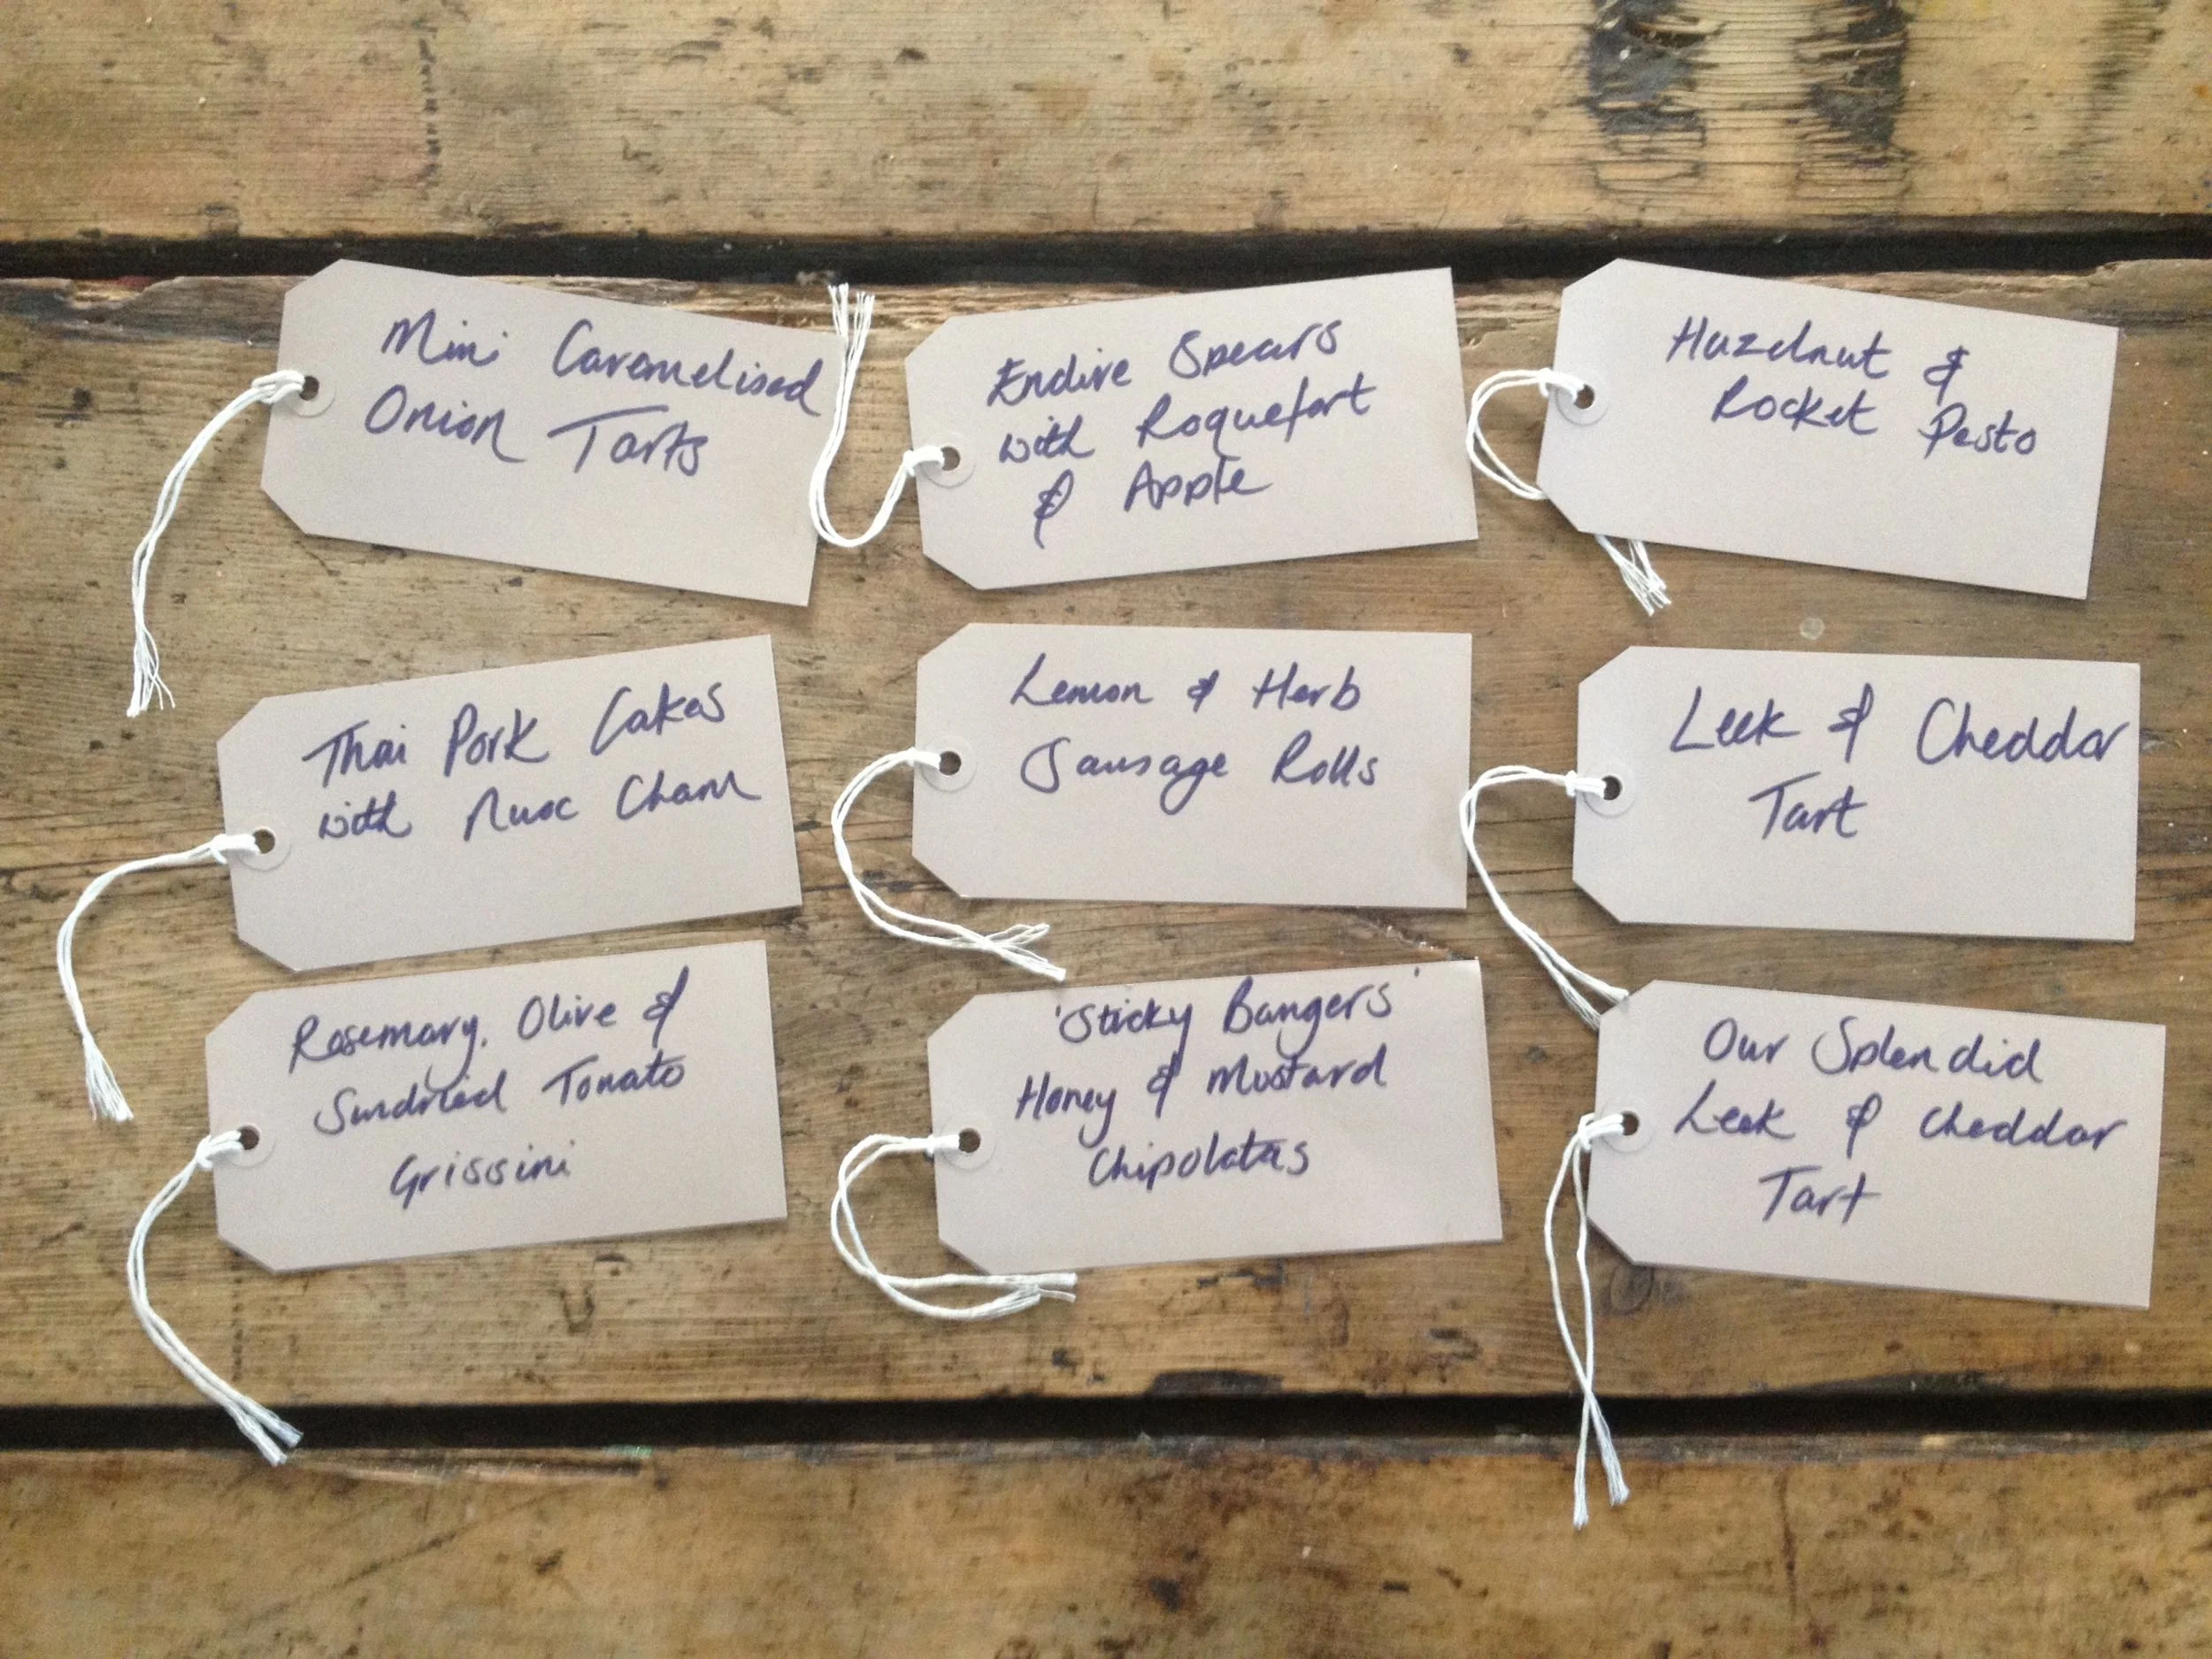 Mini Caramelised
Onion Tarts
Endive Spears
with Roquefort
& Apple
Hazelnut &
Rocket Pesto
Thai Pork Cakes
with Nuoc Cham
Lemon & Herb
Sausage Rolls
Leek & Cheddar
Tart
Rosemary, Olive &
Sundried Tomato
Grissini
'Sticky Bangers'
Honey & Mustard
Chipolatas
Our Splendid
Leek & Cheddar
Tart